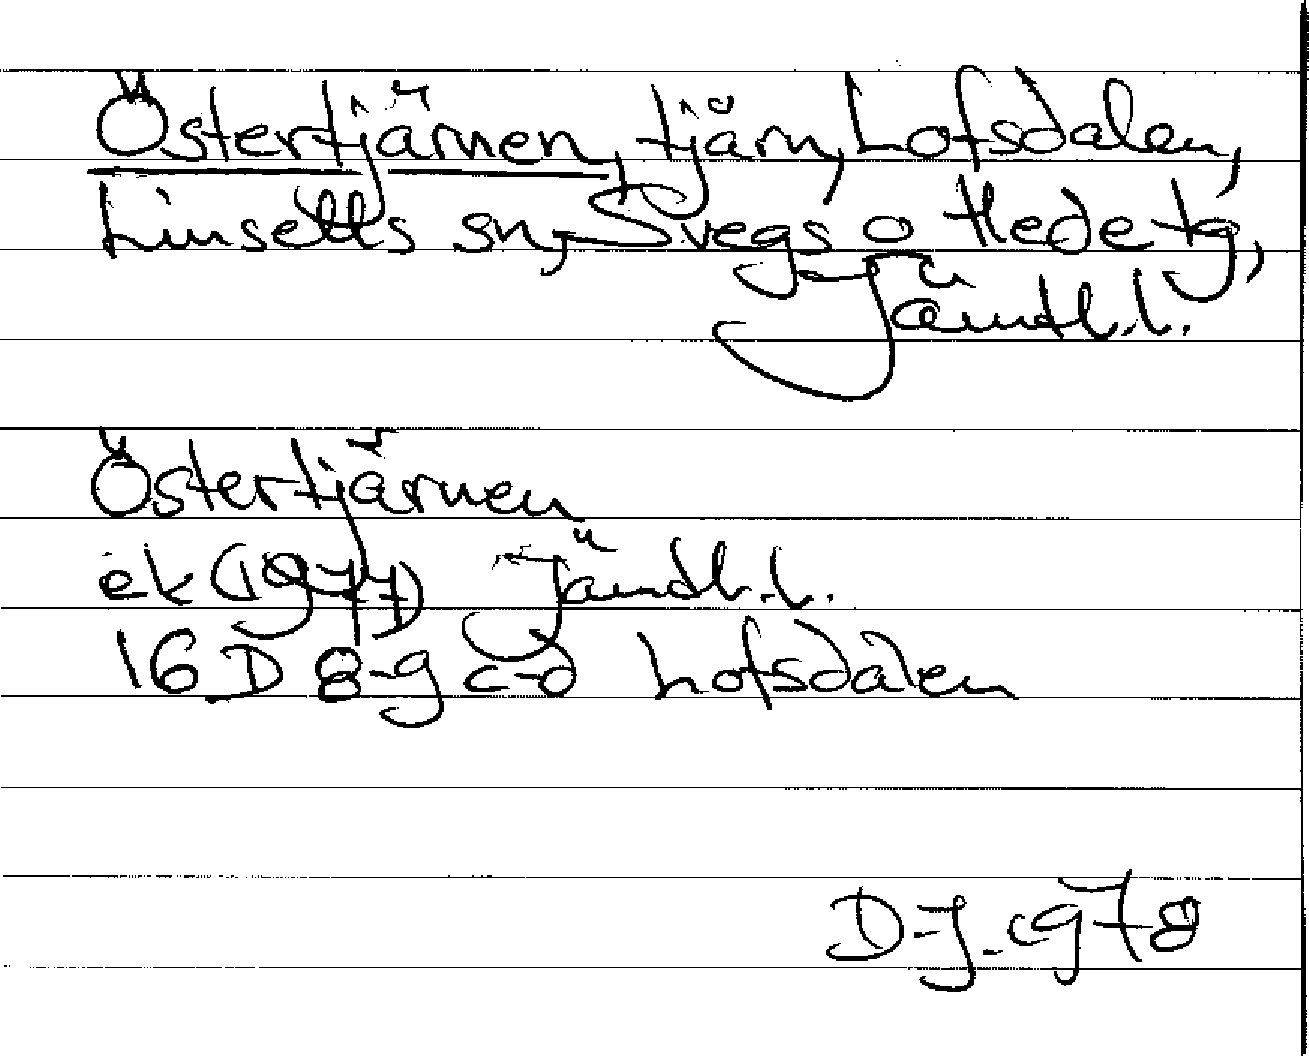 Östertjärnen, tjärn, Lofsdalen,
Linsells sn, Svegs o Hede tg,
Jämtl. l.
Östertjärnen
ek (1977) Jämtl. l.
16 D 8-9 c-d Lofsdalen
DJ. 1978